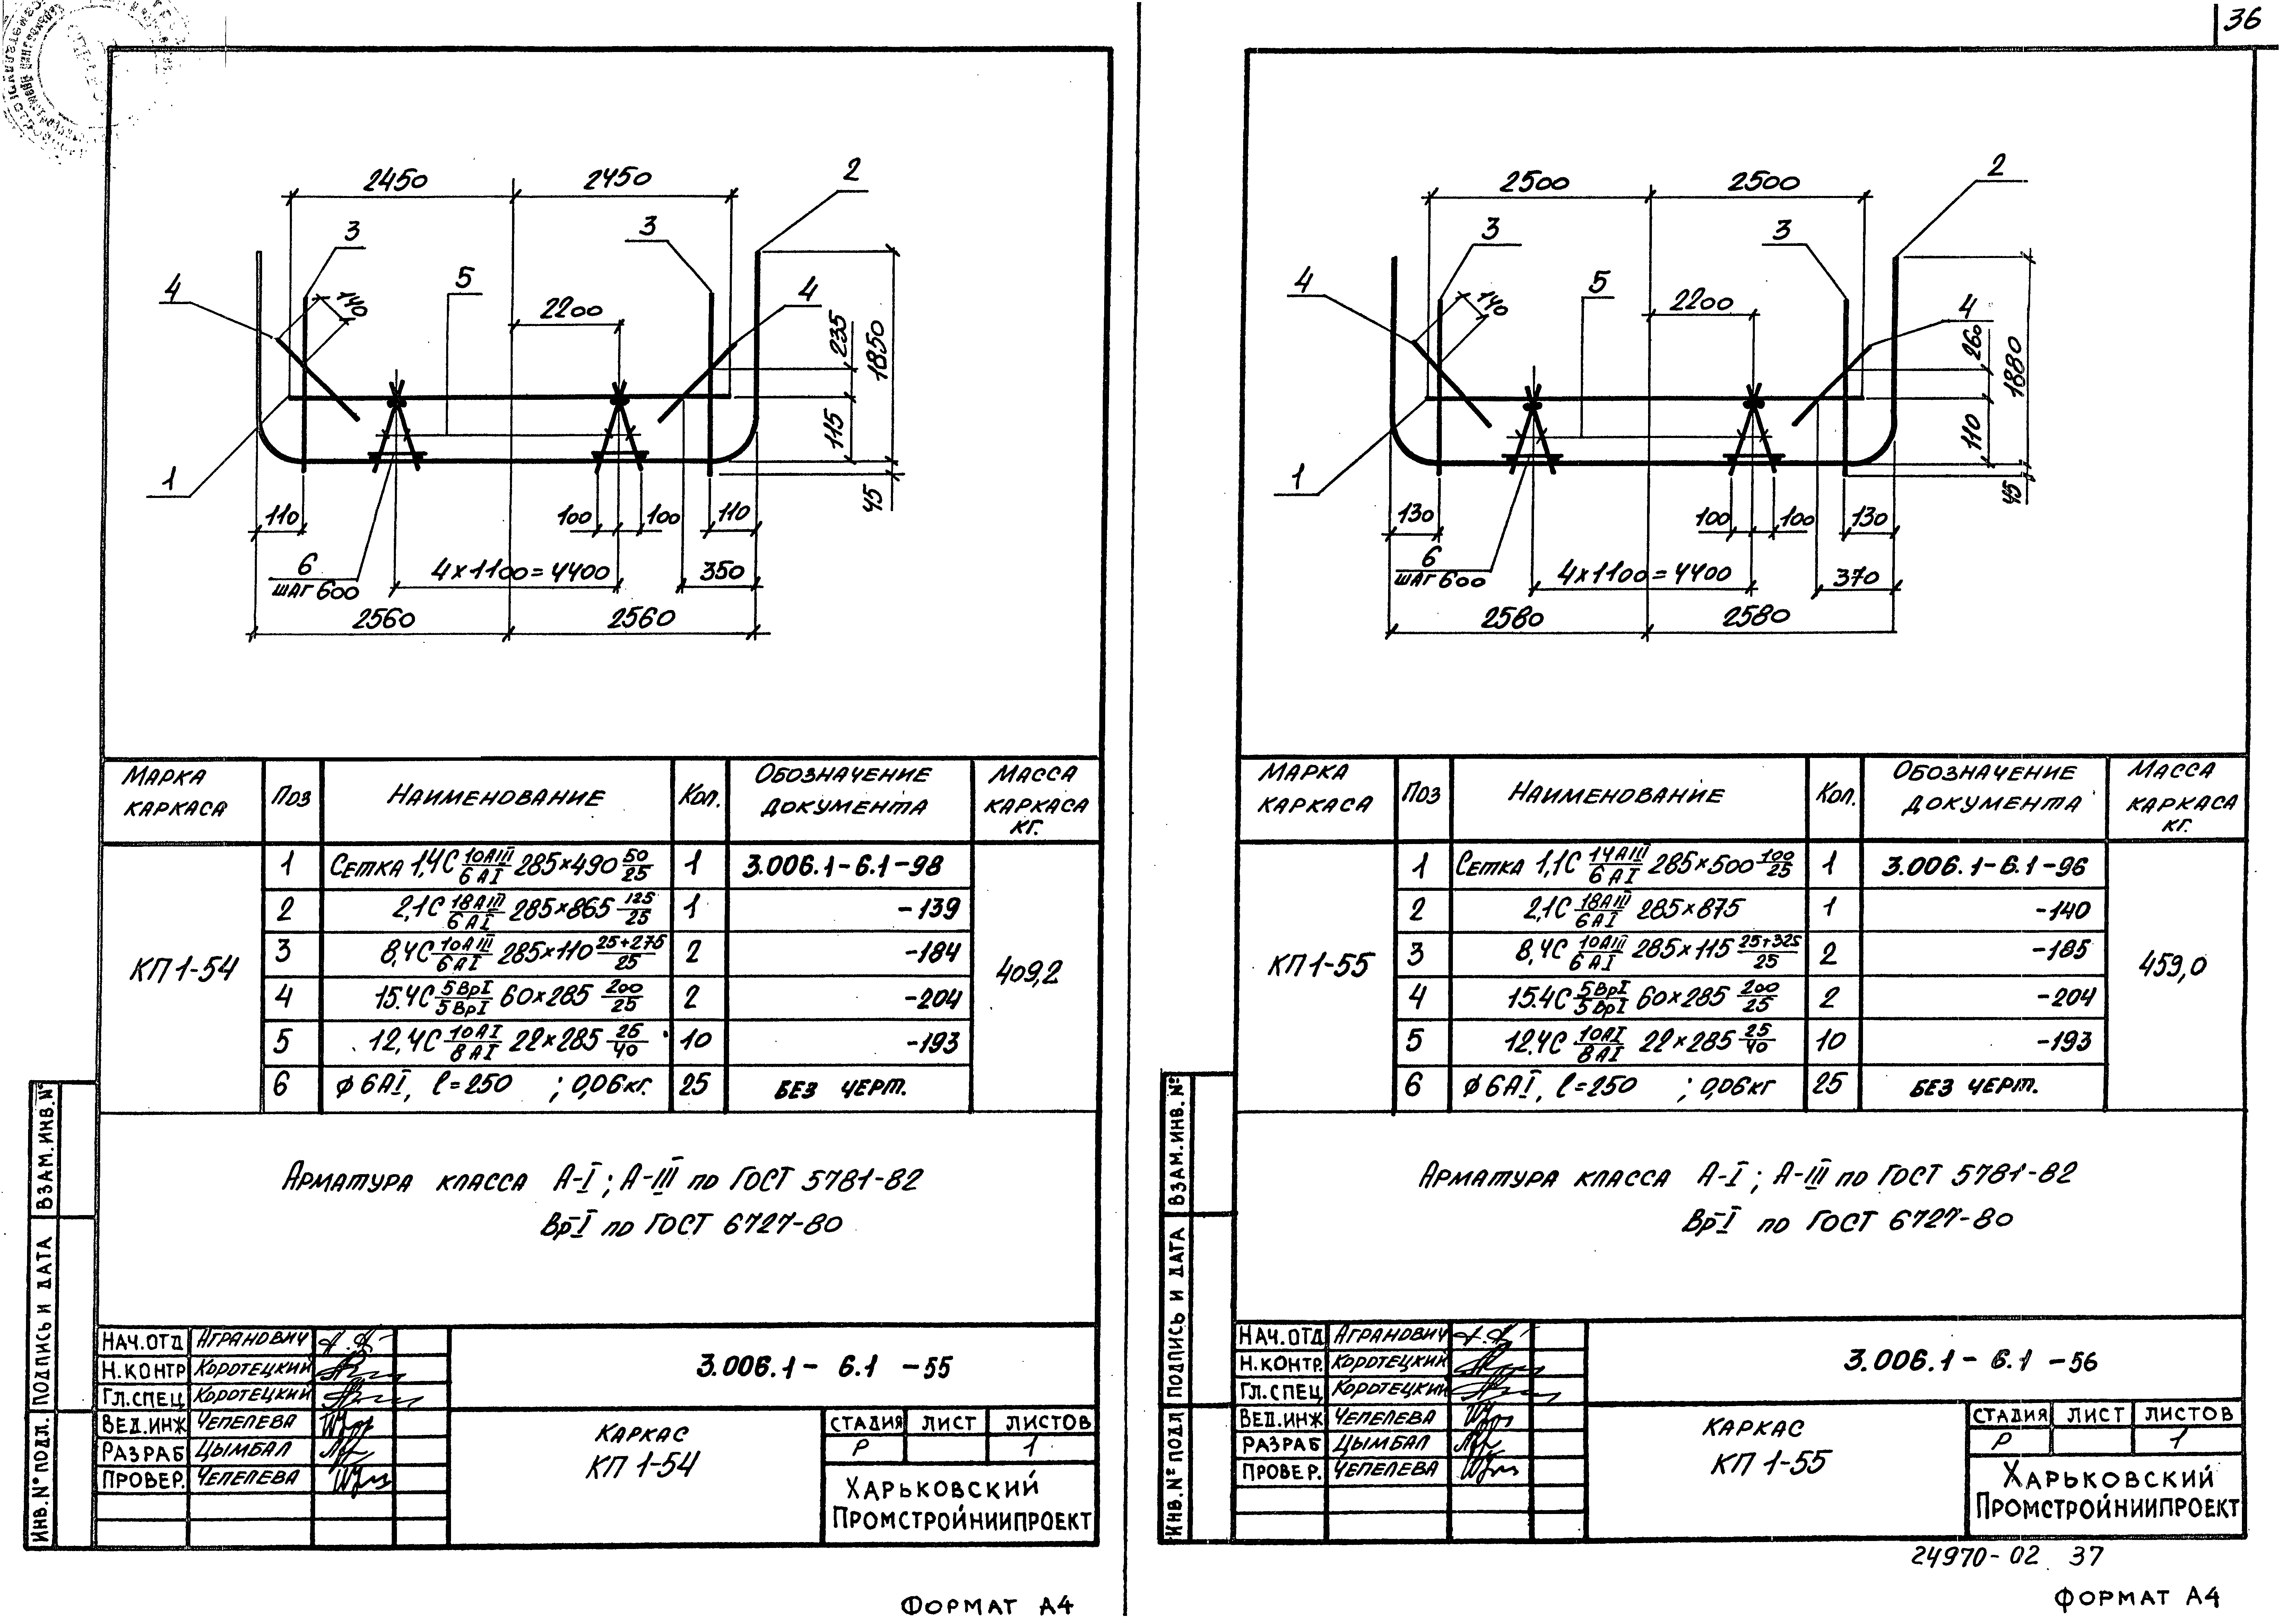 36
2450 2450 2
3 3
4 140 5 2200 4
235 1850
115
1
45
110 100 100 110
6
шаг 600
4×1100=4400 350
2560 2560
Марка каркаса Поз Наименование Кол. Обозначение документа Масса каркаса кг.
КП 1-54 409,2
1 Сетка 1,4С 10АIII/6АI 285×490 50/25 1 3.006.1-6.1-98
2 2,1С 18АIII/6АI 285×865 125/25 1 -139
3 8,4С 10АIII/6АI 285×110 25+275/25 2 -184
4 15.4С 5ВрI/5ВрI 60×285 200/25 2 -204
5 12,4С 10АI/8АI 22×285 25/40 10 -193
6 ϕ6АI, ℓ=250 ; 0,06кг. 25 без черт.
Арматура класса А-I; А-III по ГОСТ 5781-82
Вр-I по ГОСТ 6727-80
Взам. инв. №
Подпись и дата
Инв. № подл.
Нач. отд Агранович
Н. контр Коротецкий
Гл. спец Коротецкий
Вед. инж Чепелева
Разраб Цымбал
Провер. Чепелева
3.006.1- 6.1 -55
Каркас
КП 1-54
Стадия Лист Листов
Р 1
Харьковский
Промстройниипроект
Формат А4
2500 2500 2
3 3
4 140 5 2200 4
260 1880
110
1
45
130 100 100 130
6
шаг 600
4×1100=4400 370
2580 2580
Марка каркаса Поз Наименование Кол. Обозначение документа Масса каркаса кг.
КП 1-55 459,0
1 Сетка 1,1С 14АIII/6АI 285×500 100/25 1 3.006.1-6.1-96
2 2,1С 18АIII/6АI 285×875 1 -140
3 8,4С 10АIII/6АI 285×115 25+325/25 2 -185
4 15.4С 5ВрI/5ВрI 60×285 200/25 2 -204
5 12.4С 10АI/8АI 22×285 25/40 10 -193
6 ϕ6АI, ℓ=250 ; 0,06кг 25 без черт.
Арматура класса А-I; А-III по ГОСТ 5781-82
Вр-I по ГОСТ 6727-80
Взам. инв. №
Подпись и дата
Инв. № подл
Нач. отд Агранович
Н. контр. Коротецкий
Гл. спец Коротецкий
Вед. инж Чепелева
Разраб Цымбал
Провер. Чепелева
3.006.1- 6.1 -56
Каркас
КП 1-55
Стадия Лист Листов
Р 1
Харьковский
Промстройниипроект
24970-02 37
Формат А4